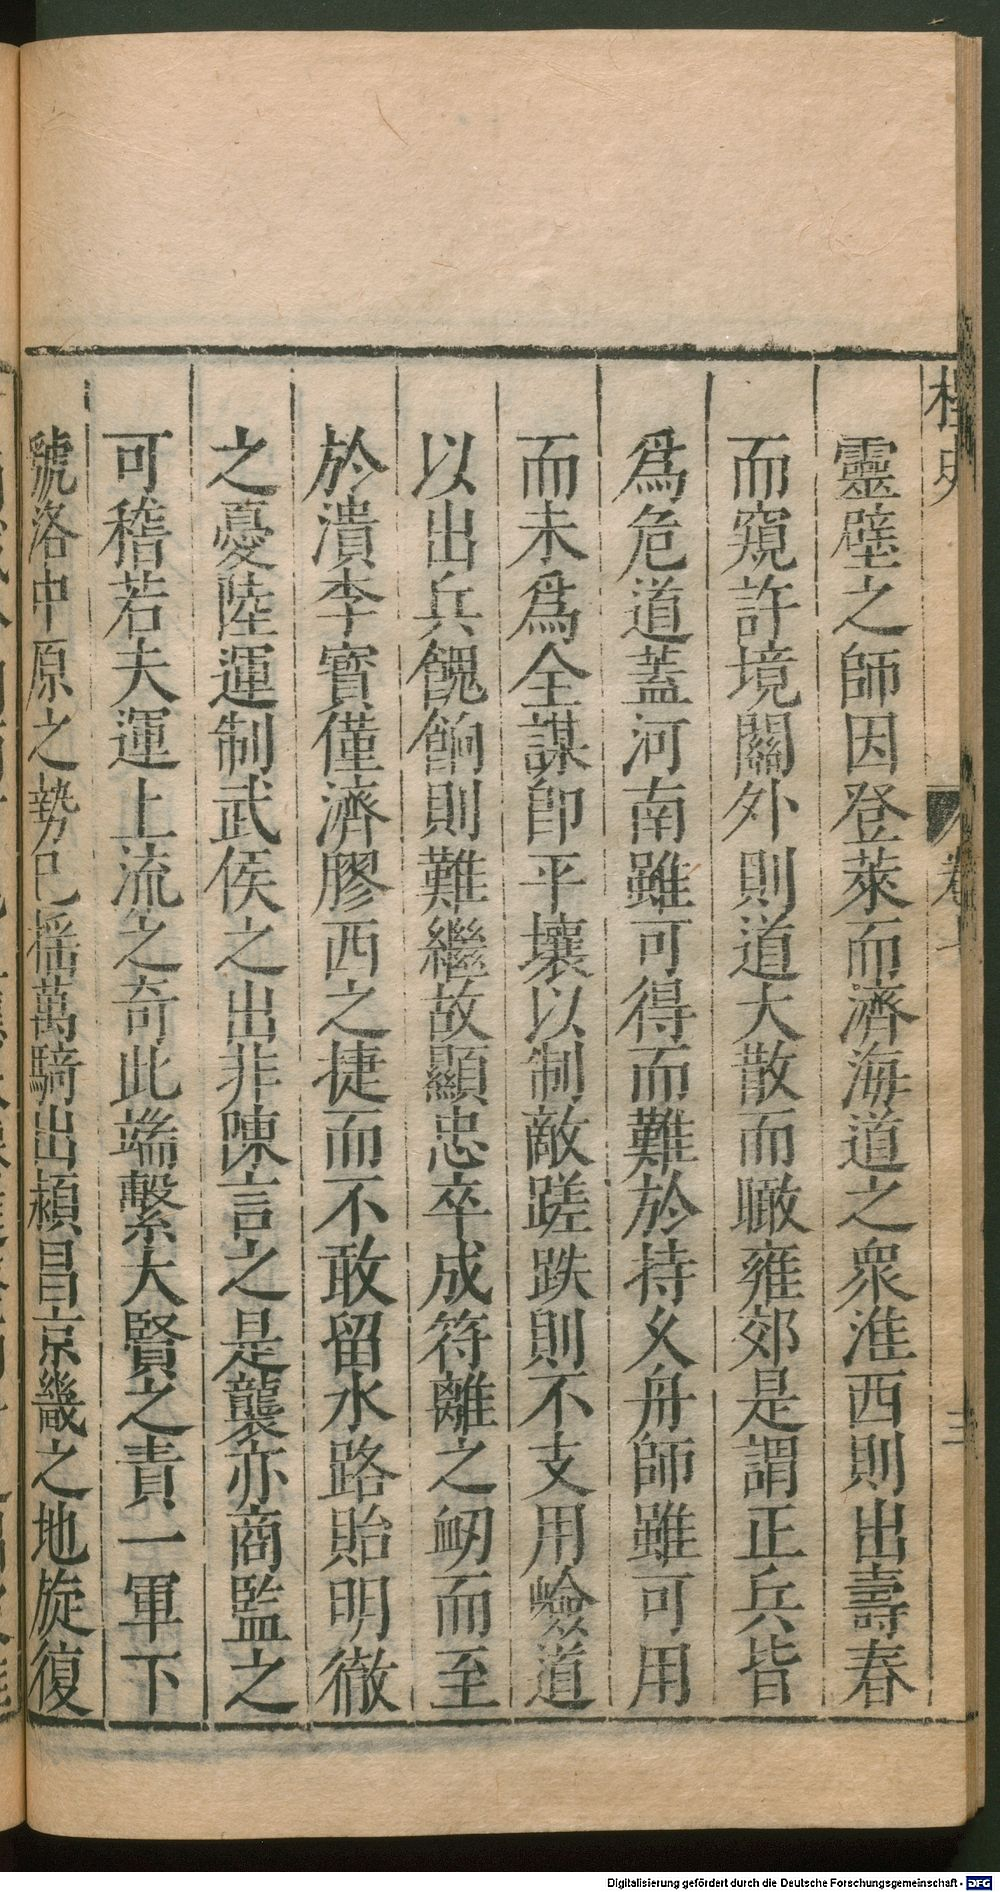 桯史
卷十
三
靈壁之師因登萊而濟海道之衆淮西則出壽春
而窺許境關外則道大散而瞰雍郊是謂正兵皆
爲危道蓋河南雖可得而難於持久舟師雖可用
而未爲全謀卽平壤以制敵蹉跌則不支用嶮道
以出兵餽餉則難繼故顯忠卒成符離之衂而至
於潰李寶僅濟膠西之捷而不敢留水路貽明徹
之憂陸運制武侯之出非陳言之是襲亦商監之
可稽若夫運上流之奇此端繫大賢之責一軍下
虢洛中原之勢已揺萬騎出潁昌京畿之地旋復
Digitalisierung gefördert durch die Deutsche Forschungsgemeinschaft - DFG